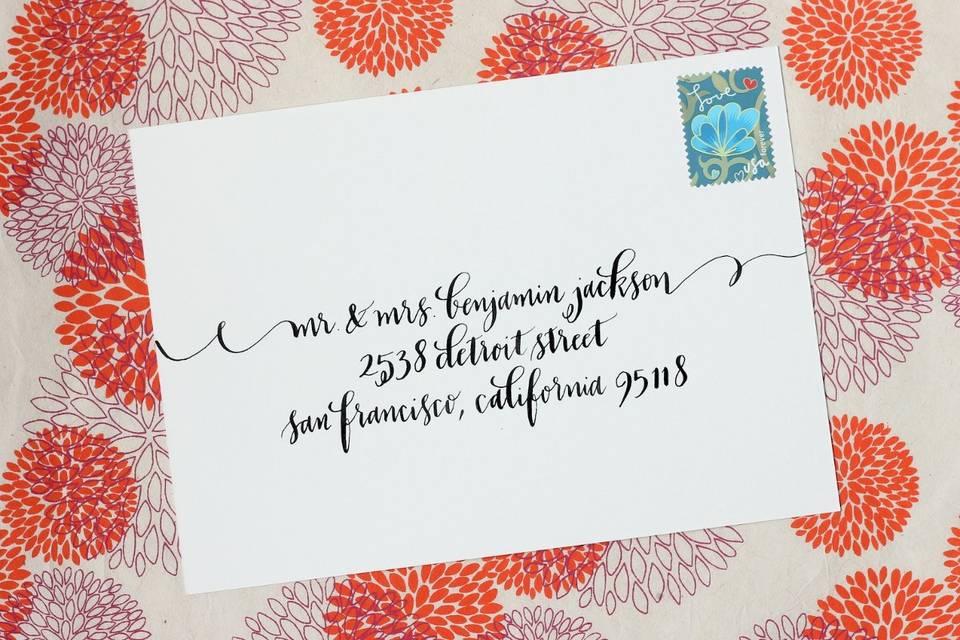 Love
forever
usa
mr. & mrs. benjamin jackson
2538 detroit street
san francisco, california 95118